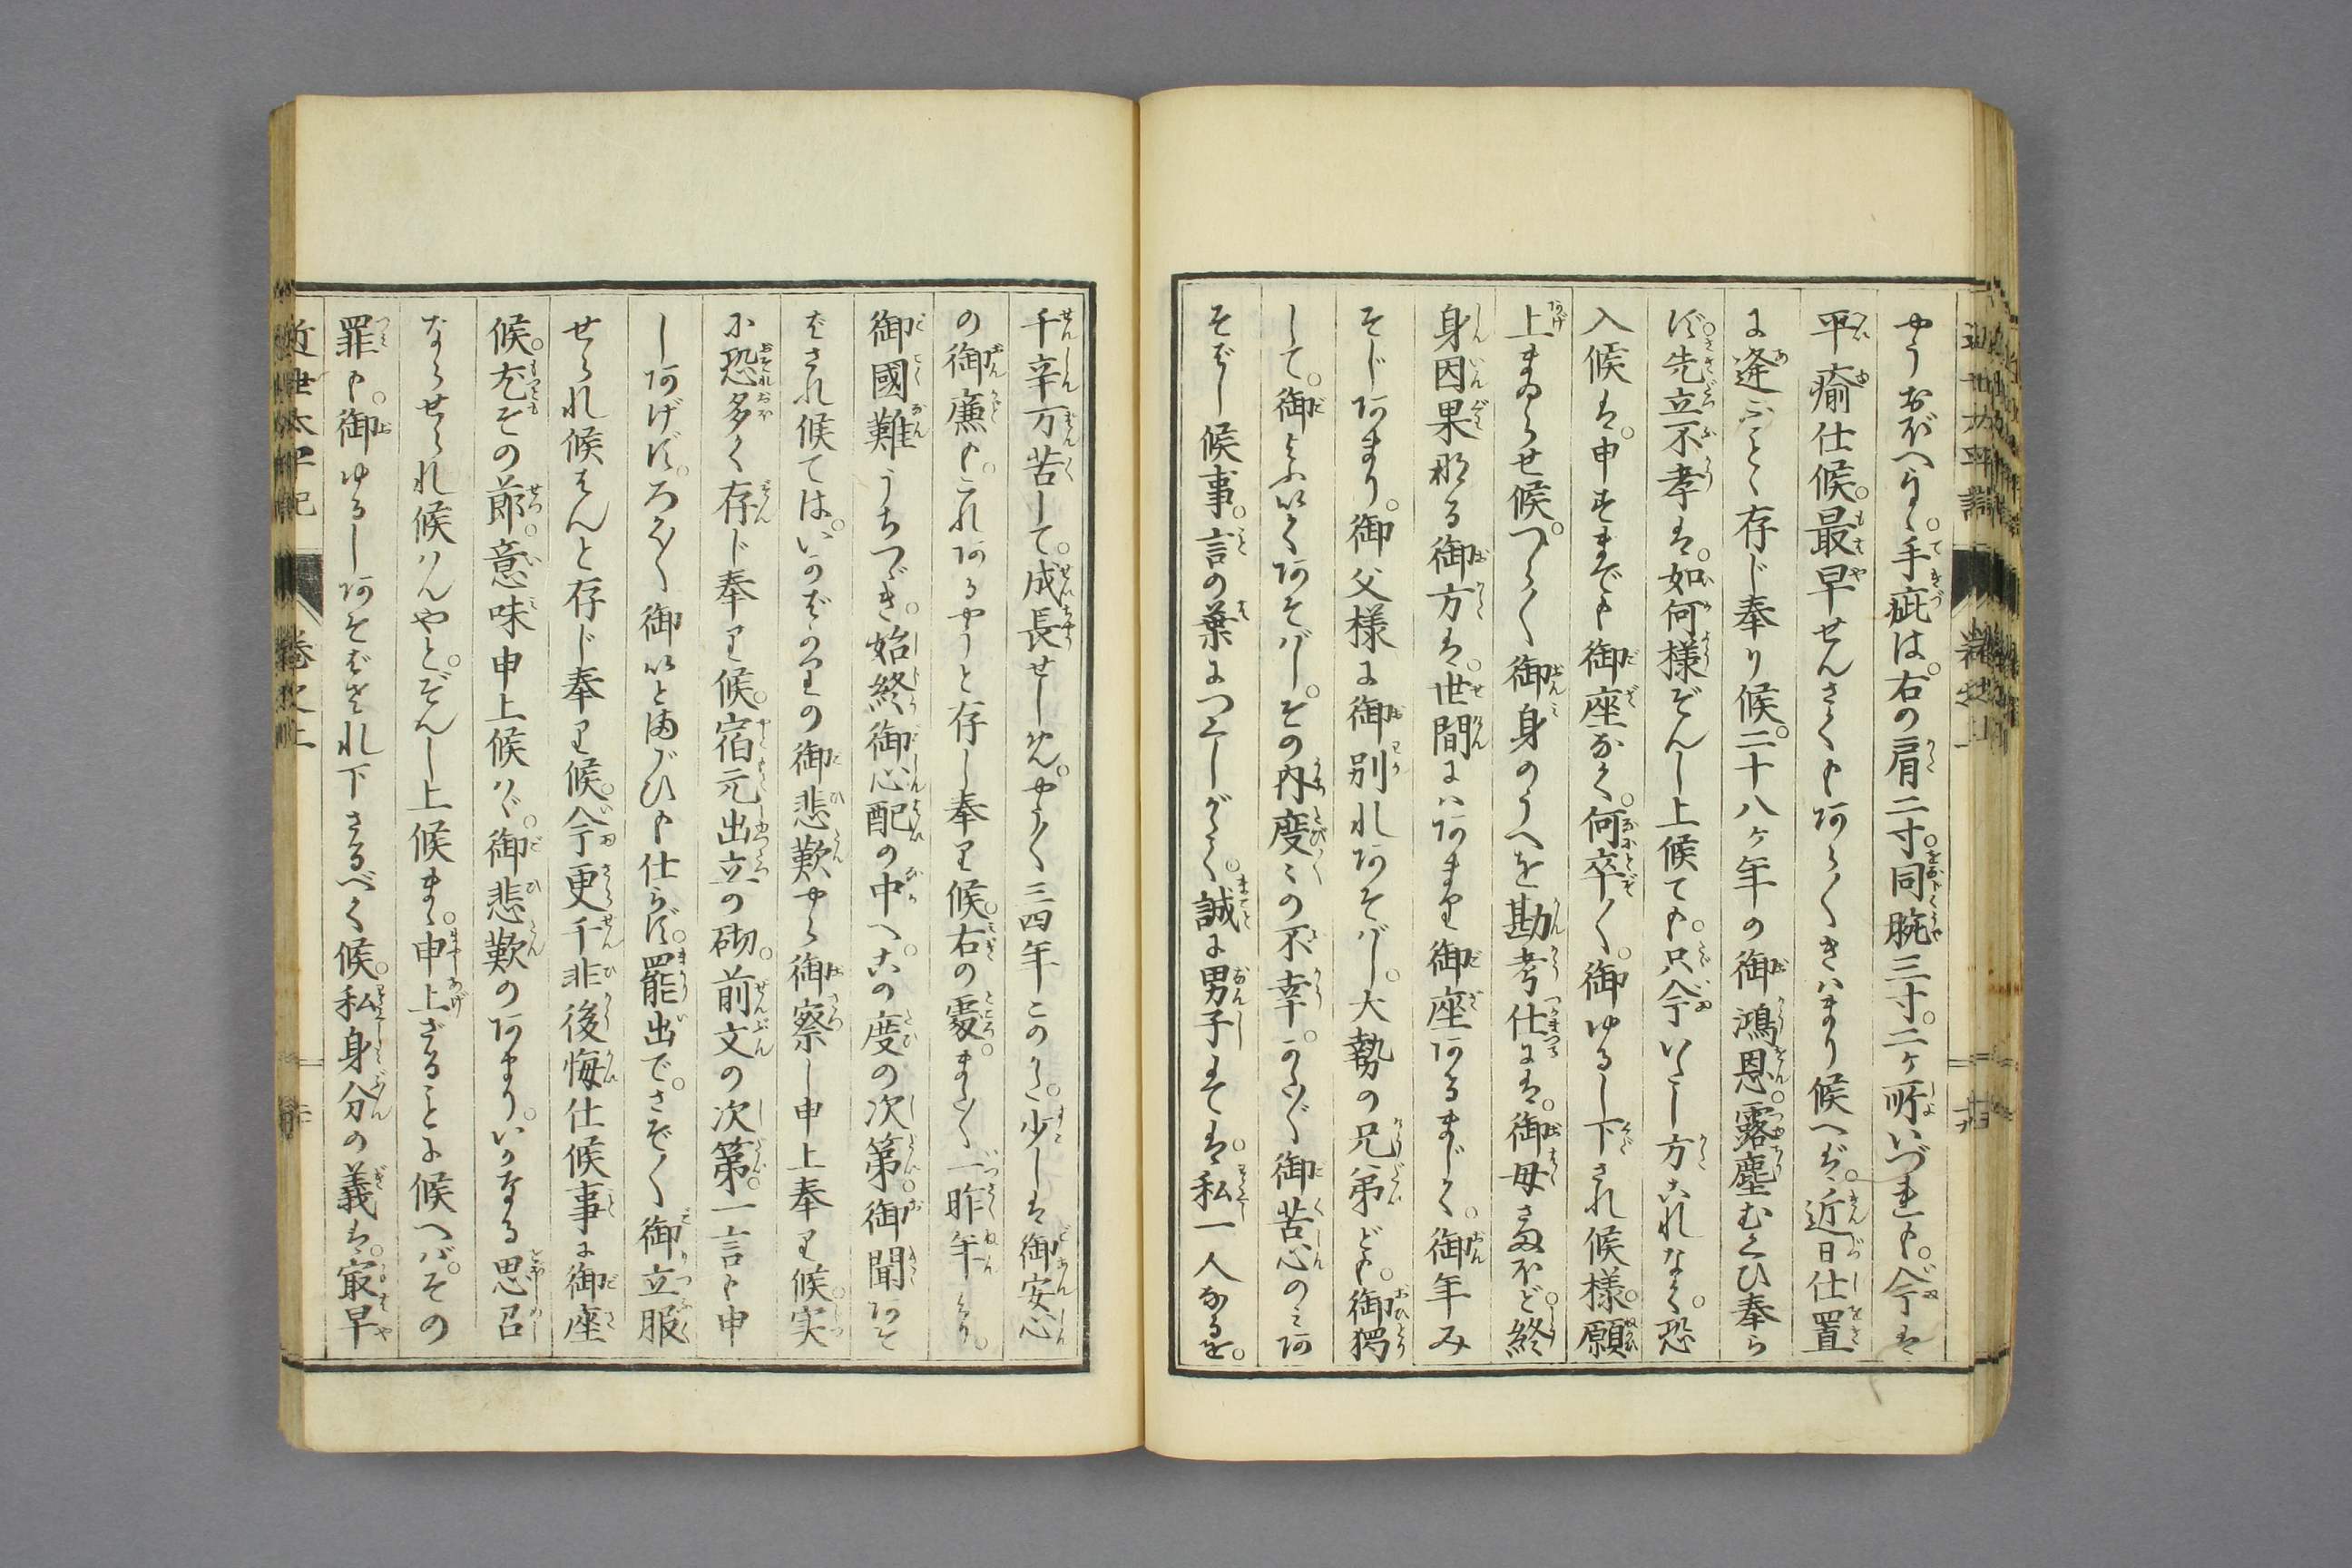 やうおぼへ候。手疵は。右の肩二寸。同腕三寸。二ケ所いづれも。今は
平癒仕候。最早せんさくもあら〳〵きはまり候へば。近日仕置
に逢ふことゝ存じ奉り候。二十八ケ年の御鴻恩。露塵むくひ奉ら
ず。先立不孝は。如何様ぞんし上候ても。只今いたし方これなく。恐
入候は。申すまでも御座なく。何卒〳〵。御ゆるし下され候様。願
上まゐらせ候。つら〳〵御身のうへを勘考仕には。御母さまほど。終
身因果なる御方は。世間にはあまり御座あるまじく。御年み
そじあまり。御父様に御別れあそばし。大勢の兄弟ども。御独
して。御よふいくあそばし。その内度々の不幸。かた〴〵御苦心のみあ
そばし候事。言の葉につくしがたく。誠に男子とては。私一人なるを。
千辛万苦して。成長せしめ。やう〳〵三四年このかた。少しは御安心
の御廉も。これあるやうと存し奉り候。右の処。また〳〵一昨年より。
御國難うちつゞき。始終御心配の中へ。この度の次第。御聞あそ
ばされ候ては。いかばかりの御悲歎やら御察し申上奉り候。実
に恐多く存じ奉り候。宿元出立の砌。前文の次第。一言も申
しあげず。ろく〳〵御いとまごひも仕らず。罷出で。さぞ〳〵御立服
せられ候はんと存じ奉り候。今更千非後悔仕候事に御座
候。尤その節。意味申上候はゞ。御悲歎のあまり。いかなる思召
ならせられ候はんやと。ぞんし上候まゝ。申上ざることに候へば。その
罪も。御ゆるしあそばされ下さるべく候。私身分の義は。最早
近世太平記 巻之上